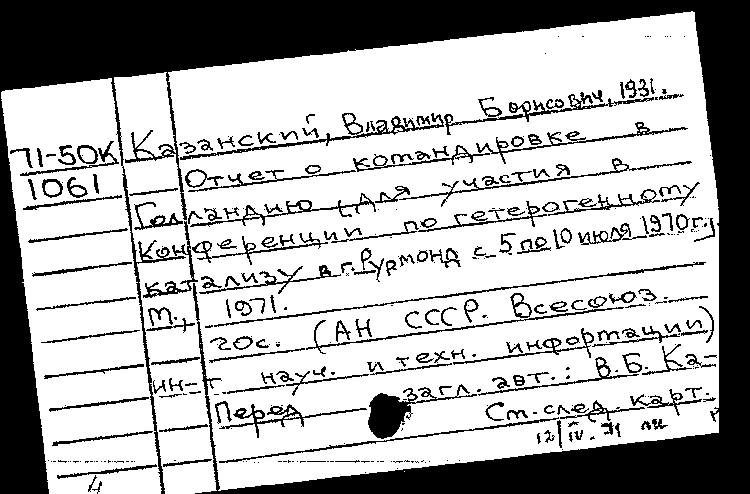 71-50К Казанский, Владимир Борисович, 1931.
1061 Отчет о командировке в
Голландию (для участия в
конференции по гетерогенному
катализу в г. Рурмонд с 5 по 10 июля 1970 г.)
М., 1971.
20с. (АН СССР. Всесоюз.
ин-т науч. и техн. информации)
Перед загл. авт.: В.Б. Ка-
См. след. карт.
12/IV. 71
4